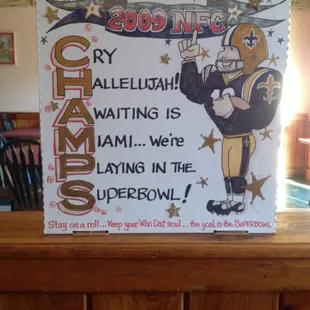 2009 NFC
CRY
HALLELUJAH!
AWAITING IS
MIAMI... We're
PLAYING IN THE
SUPERBOWL!
Stay on a roll... Keep your Who Dat soul... the goal is the SUPERBOWL